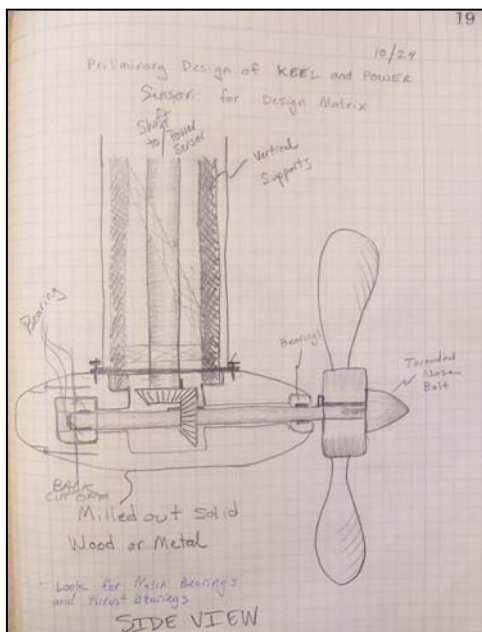 19
10/24
Priliminary Design of KEEL and POWER
Sensor for Design Matrix
Shaft
to Power
Sensor
Vertical
Supports
Bearing
Bearings
Threaded
Nose
Bolt
BACK
Milled out Solid
Wood or Metal
- Look for Nylin Bearings
and Thrust Bearings
SIDE VIEW